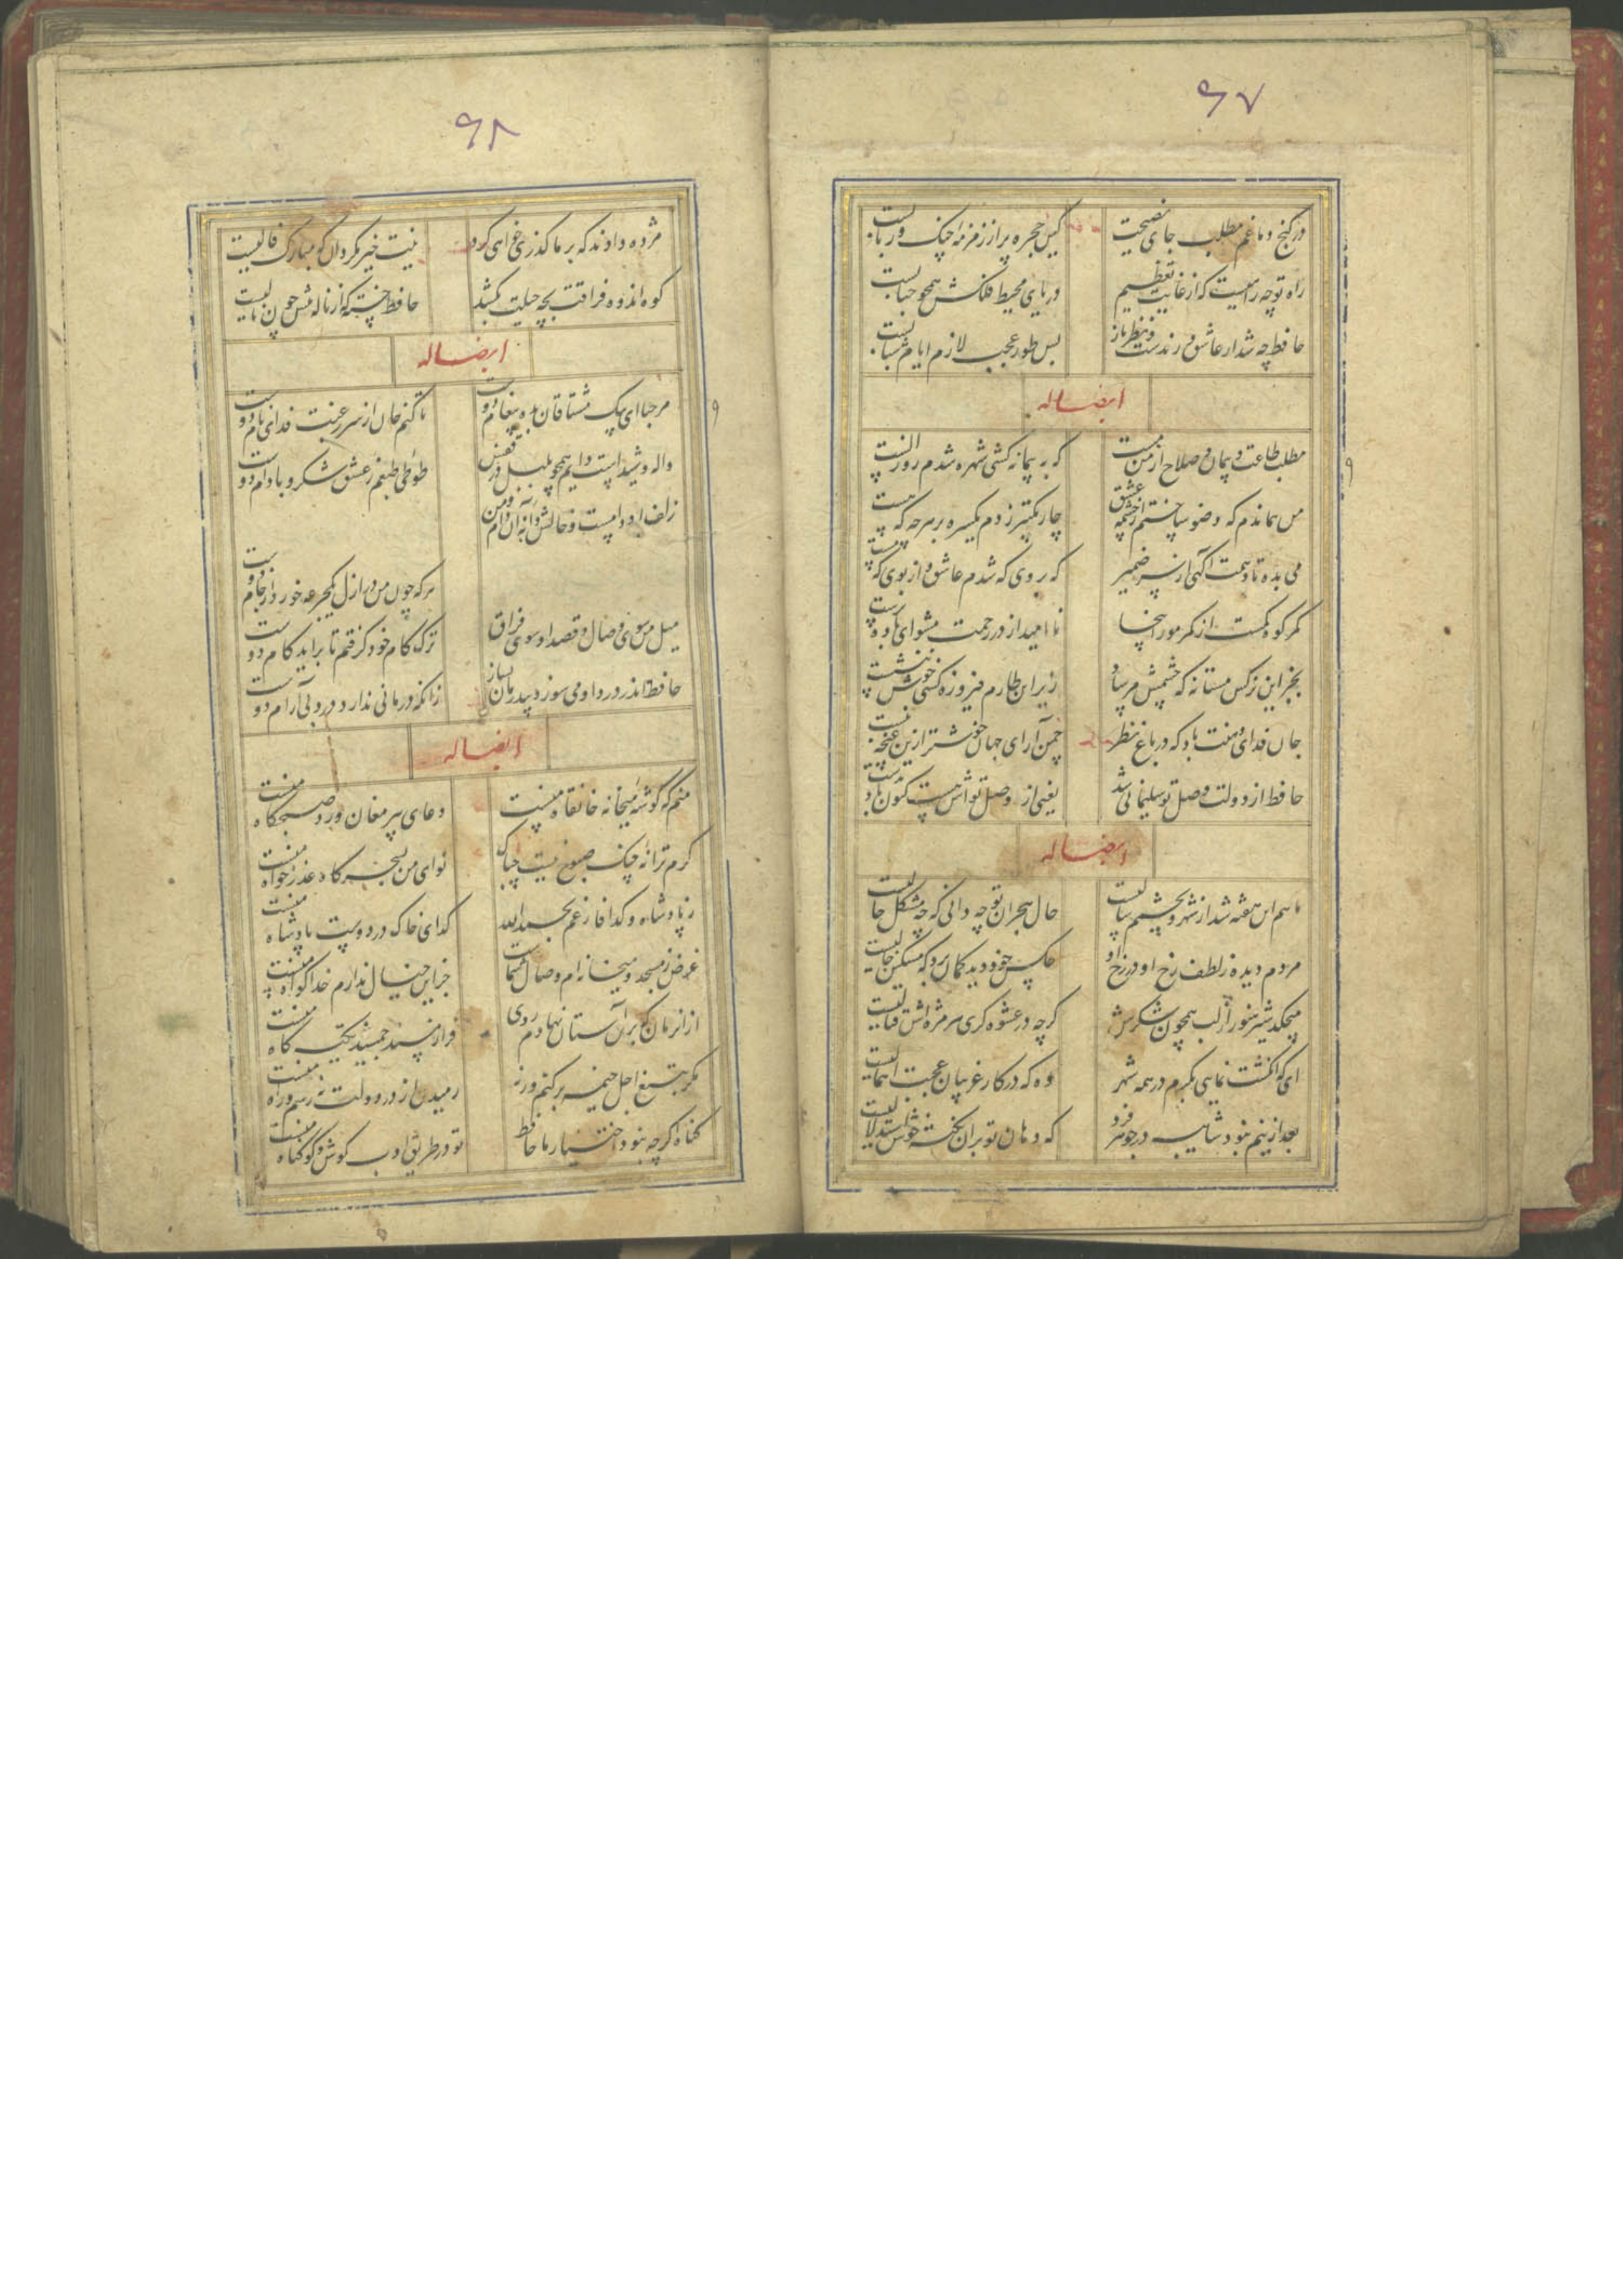 ۶۷
در کنج دماغم مطلب جای نصیحت
کین حجره پر از زمزمهٔ چنک و ربابست
راه تو چه راهیست که از غایت تعظیم
دریای محیط فلکش همچو حبابست
حافظ چه شد ار عاشق و رندست و نظرباز
بس طور عجب لازم ایام شبابست
ایضاله
مطلب طاعت و پیمان و صلاح از من مست
که به پیمانه کشی شهره شدم روز الست
من هماندم که وضو ساختم از چشمه عشق
چار تکبیر زدم یکسره بر هرچه که هست
می بده تا دهمت آکهی از سر ضمیر
که بروی که شدم عاشق و از بوی که مست
کمر کوه کمست از کمر مور اینجا
ناامید از در رحمت مشو ای باده پرست
بجز این نرکس مستانه که چشمش مرساد
زیر این طارم فیروزه کسی خوش ننشست
جان فدای دهنت باد که در باغ نظر
چمن آرای جهان خوشتر ازین غنچه نبست
حافظ از دولت وصل تو سلیمانی شد
یعنی از وصل تواش نیست کنون باد بدست
ایضاله
ماهم این هفته شد از شهر و بچشمم سالیست
حال هجران تو چه دانی که چه مشکل حالیست
مردم دیده ز لطف رخ او در رخ او
عکس خود دید کمان برد که مشکین خالیست
میچکد شیر هنوز از لب همچون شکرش
کرچه در عشوه کری هر مژه اش قتالیست
ای که انکشت نمایی بکرم در همه شهر
وه که در کار غریبان عجبت اهمالیست
بعد ازینم نبود شایبه در جوهر فرد
که دهان تو بران نکته خوش استدلالیست
۶۸
مژده دادند که بر ما کذری خواهی کرد
نیت خیر مکردان که مبارک فالیست
کوه اندوه فراقت بچه حیلت بکشد
حافظ خسته که از ناله تنش چون نالیست
ایضاله
مرحبا ای پیک مشتاقان بده پیغام دوست
تا کنم جان از سر رغبت فدای نام دوست
واله و شیداست دایم همچو بلبل در قفس
طوطی طبعم ز عشق شکر و بادام دوست
زلف او دامست و خالش دانه آن دام و من
هرکه چون من در ازل یکجرعه خورد از جام دوست
میل من سوی وصال و قصد او سوی فراق
ترک کام خود کرفتم تا براید کام دوست
حافظ اندر درد او می سوز و بیدرمان بساز
زانکه درمانی ندارد درد بی آرام دوست
ایضاله
منم که کوشه میخانه خانقاه منست
دعای پیر مغان ورد صبحکاه منست
کرم ترانهٔ چنک صبوح نیست چه باک
نوای من بسحرکاه عذرخواه منست
ز پادشاه و کدا فارغم بحمدالله
کدای خاک در دوست پادشاه منست
غرض ز مسجد و میخانه ام وصال شماست
جز این خیال ندارم خدا کواه منست
از انزمان که بران آستان نهادم روی
فراز مسند خورشید تکیه کاه منست
مکر بتیغ اجل خیمه برکنم ورنه
رمیدن از در دولت نه رسم و راه منست
کناه اکرچه نبود اختیار ما حافظ
تو در طریق ادب کوش و کو کناه منست